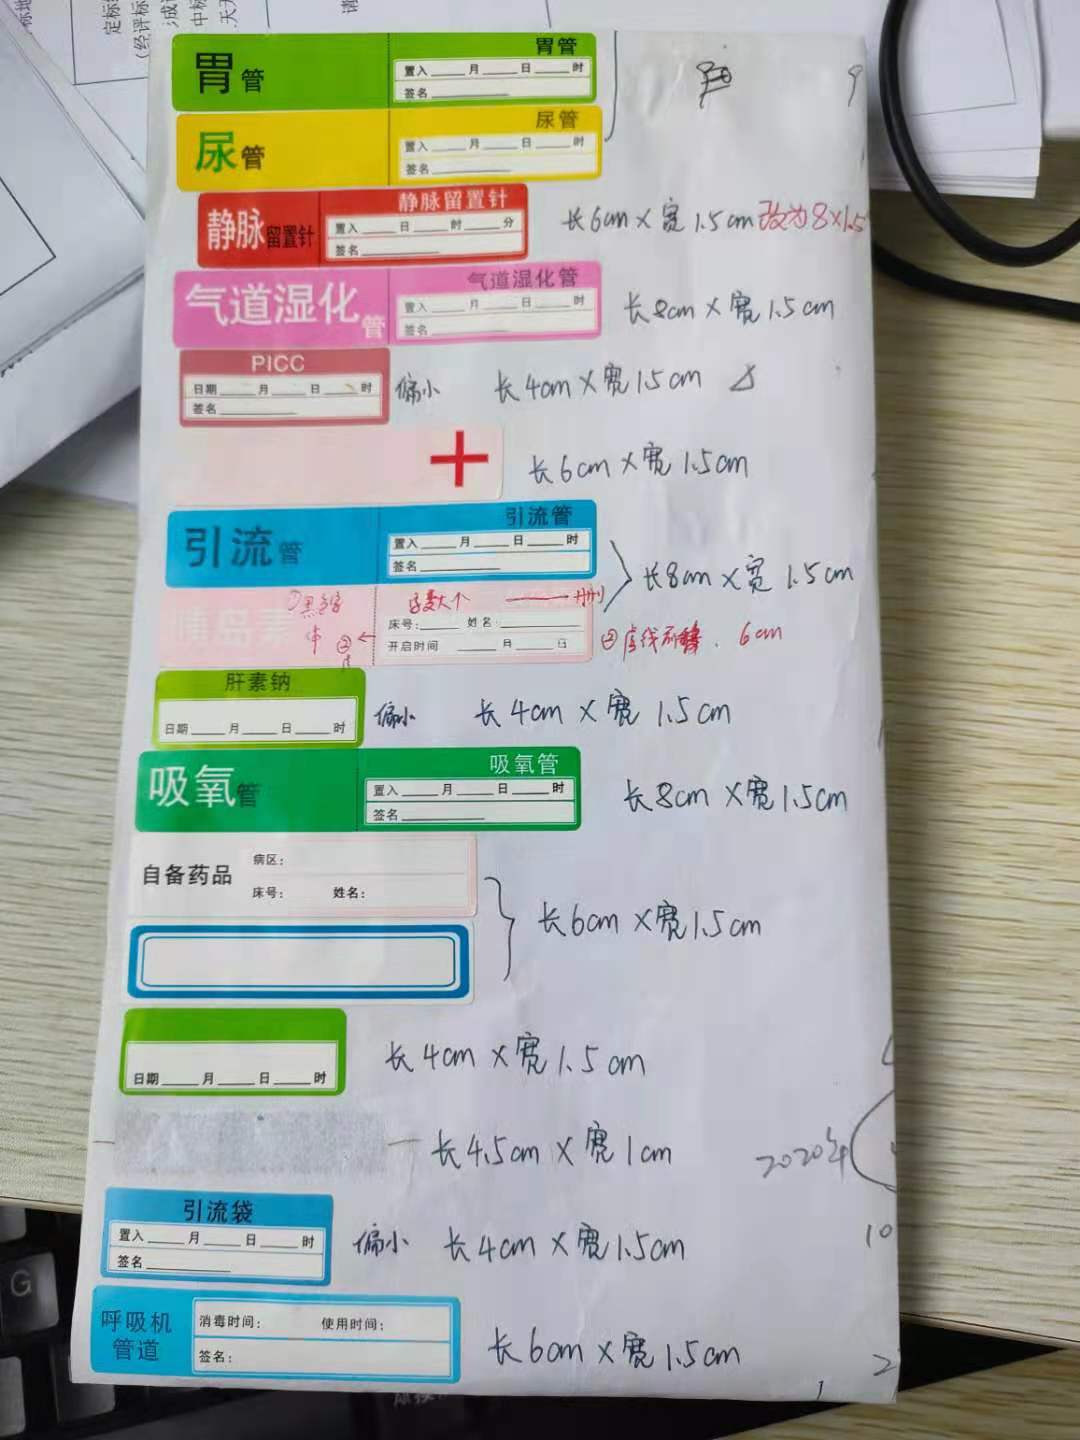 胃管
胃管
置入____月____日____时
签名________
尿管
尿管
置入____月____日____时
签名________
静脉留置针
静脉留置针
置入____日____时____分
签名________
长6cm×宽1.5cm 改为8×1.5
气道湿化管
气道湿化管
置入____月____日____时
签名________
长8cm×宽1.5cm
PICC
日期____月____日____时
签名________
偏小 长4cm×宽1.5cm
长6cm×宽1.5cm
引流管
引流管
置入____月____日____时
签名________
长8cm×宽1.5cm
胰岛素
①黑色
字变大个
床号:____ 姓名:________
开启时间 ____月____日
②
②虚线 6cm
肝素钠
日期____月____日____时
偏小 长4cm×宽1.5cm
吸氧管
吸氧管
置入____月____日____时
签名________
长8cm×宽1.5cm
自备药品
病区:
床号: 姓名:
长6cm×宽1.5cm
日期____月____日____时
长4cm×宽1.5cm
长4.5cm×宽1cm
2020年
引流袋
置入____月____日____时
签名________
偏小 长4cm×宽1.5cm
10
呼吸机管道
消毒时间: 使用时间:
签名:
长6cm×宽1.5cm
2
G